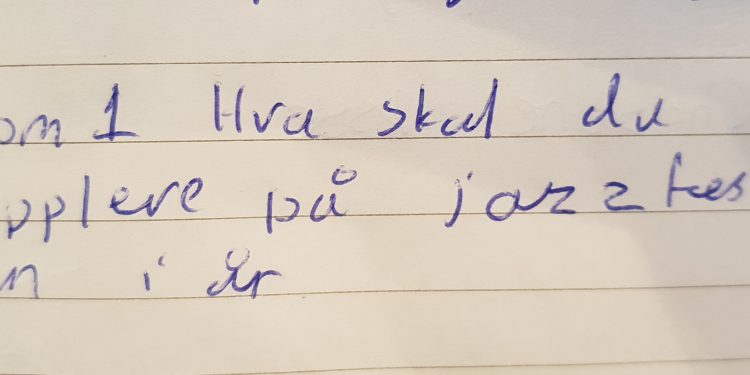 om 1 Hva skal du
pplere på jazz fes
n i år